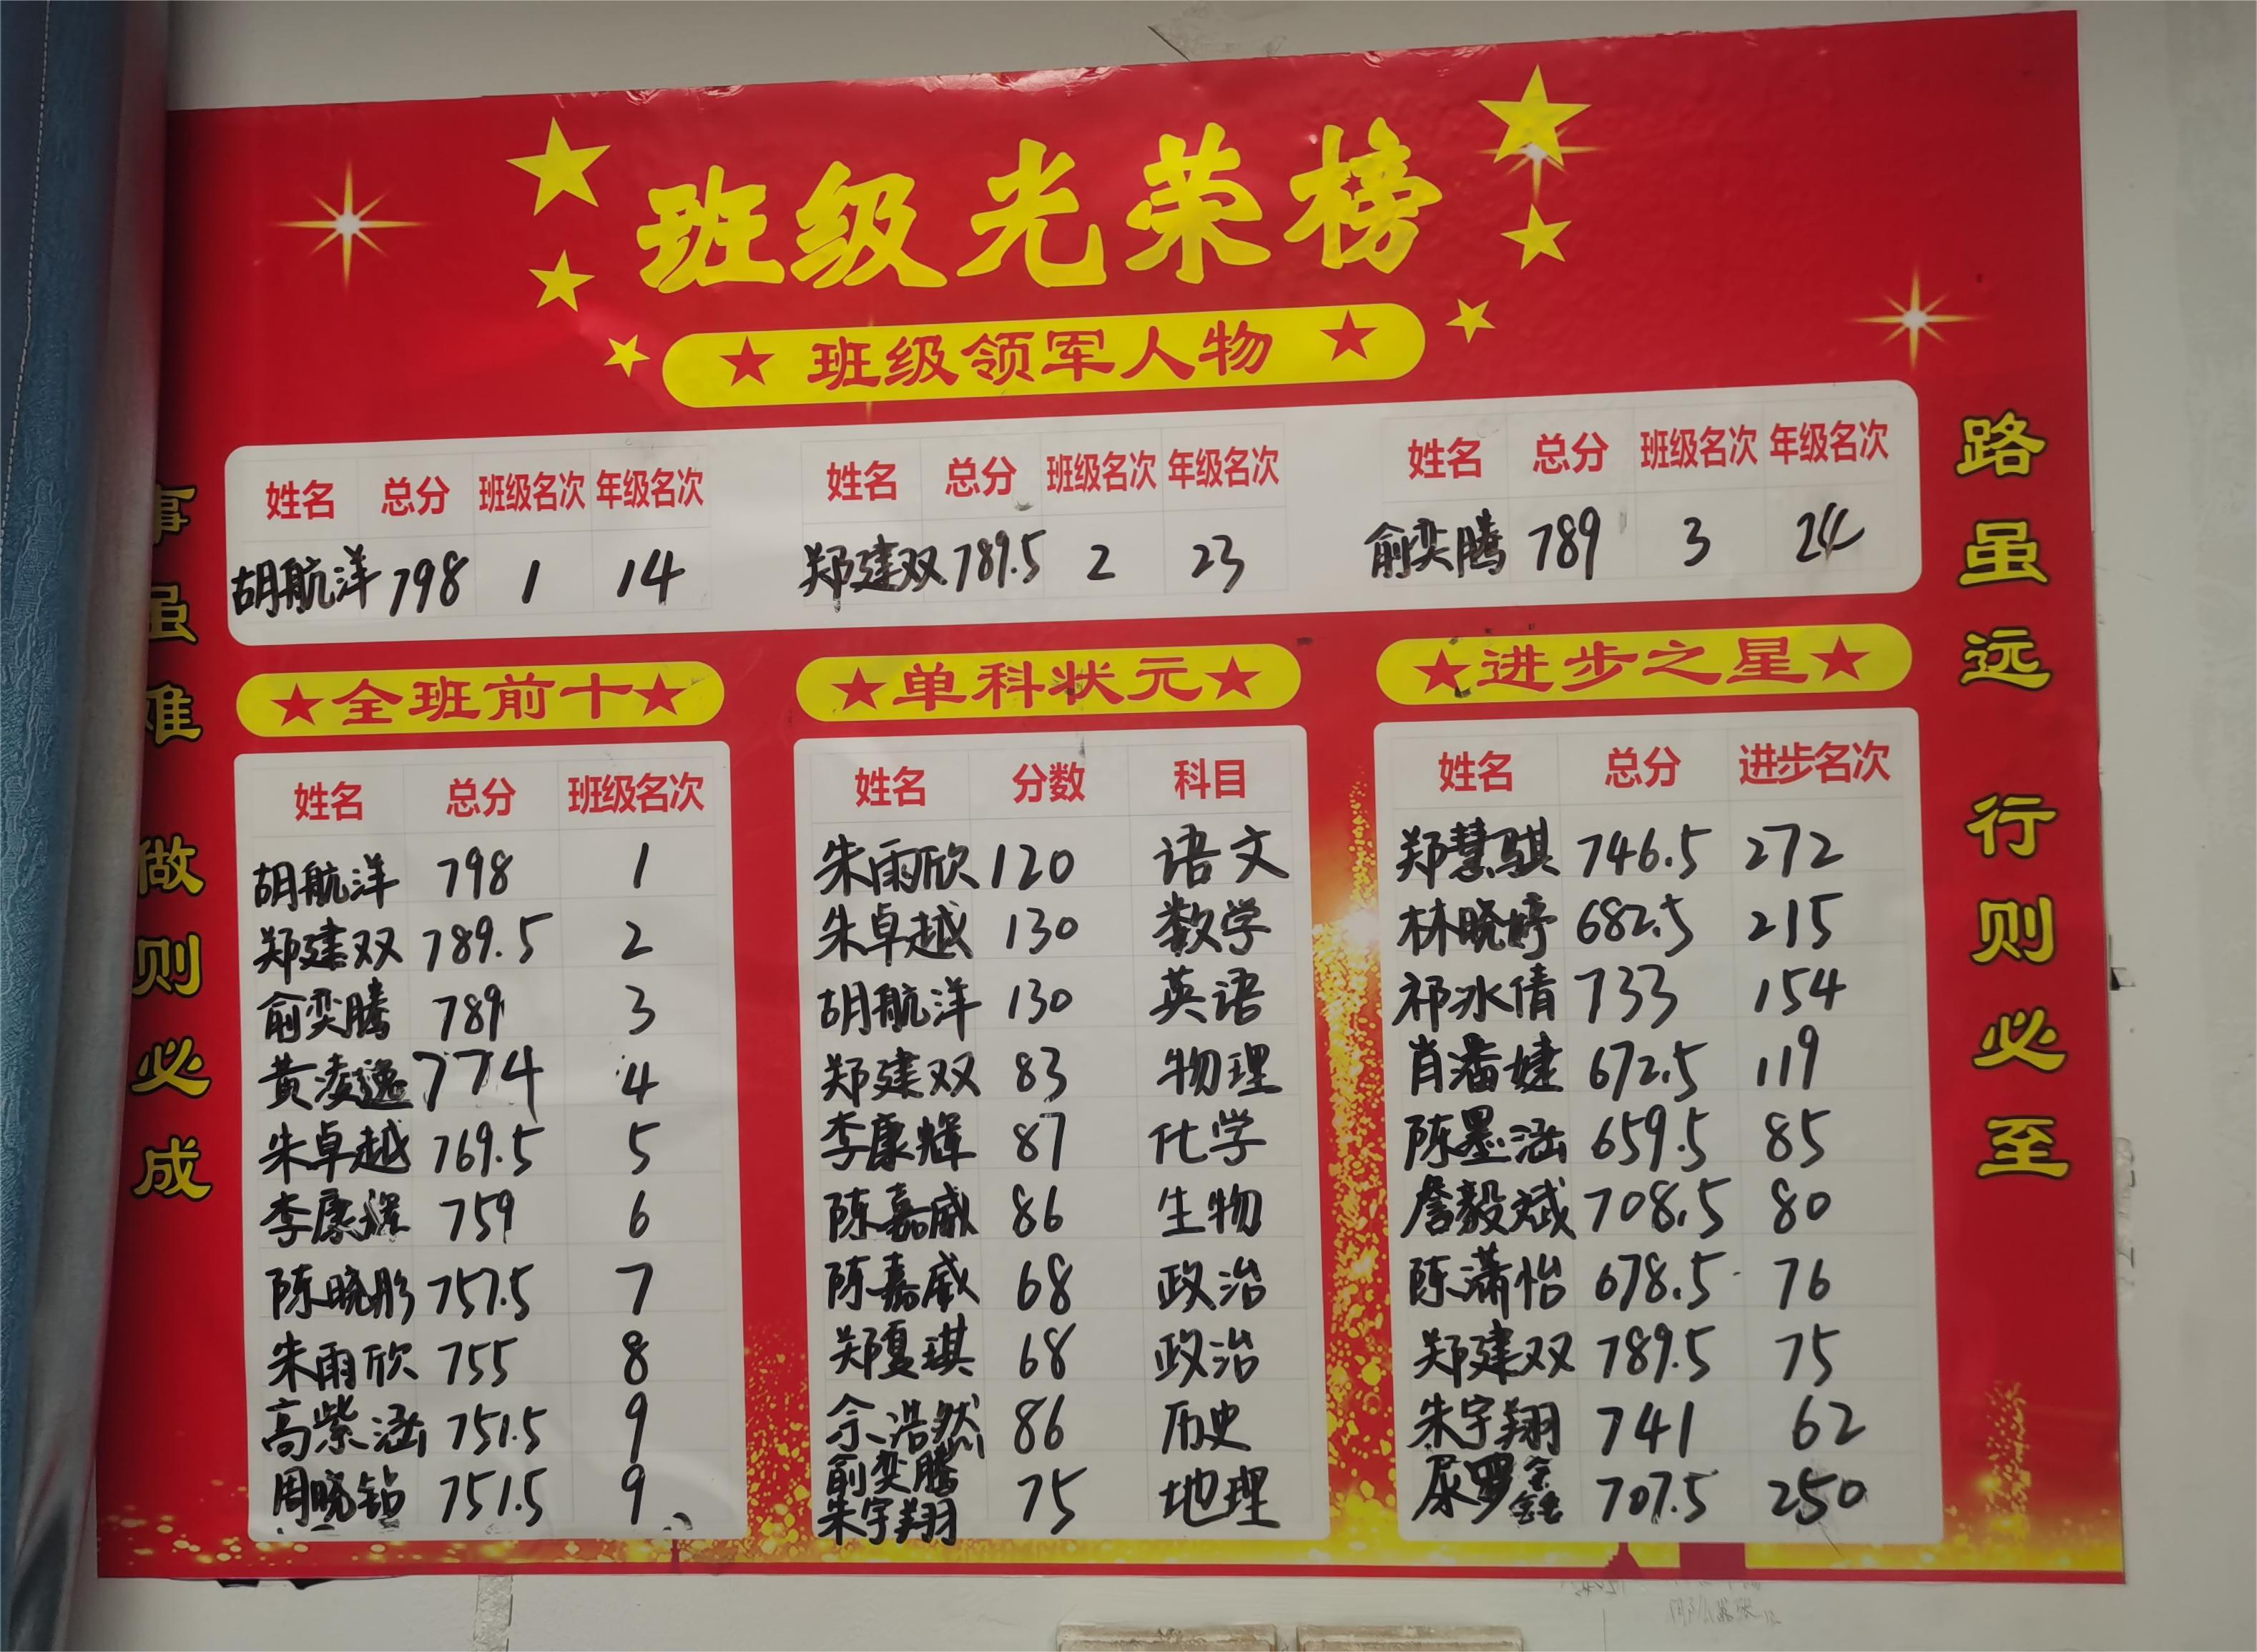 班级光荣榜
班级领军人物
姓名 总分 班级名次 年级名次
胡航洋 798 1 14
姓名 总分 班级名次 年级名次
郑建双 789.5 2 23
姓名 总分 班级名次 年级名次
俞奕腾 789 3 24
事虽难 做则必成
全班前十
姓名 总分 班级名次
胡航洋 798 1
郑建双 789.5 2
俞奕腾 789 3
黄凌逸 774 4
朱卓越 769.5 5
李康辉 759 6
陈晓彤 757.5 7
朱雨欣 755 8
高紫涵 751.5 9
周晓钻 751.5 9
单科状元
姓名 分数 科目
朱雨欣 120 语文
朱卓越 130 数学
胡航洋 130 英语
郑建双 83 物理
李康辉 87 化学
陈嘉威 86 生物
陈嘉威 68 政治
郑夏琪 68 政治
余浩然 86 历史
俞奕腾
朱宇翔 75 地理
进步之星
姓名 总分 进步名次
郑慧骐 746.5 272
林晓婷 682.5 215
祁冰倩 733 154
肖潘婕 672.5 119
陈墨涵 659.5 85
詹毅斌 708.5 80
陈潇怡 678.5 76
郑建双 789.5 75
朱宇翔 741 62
707.5 250
路虽远 行则必至